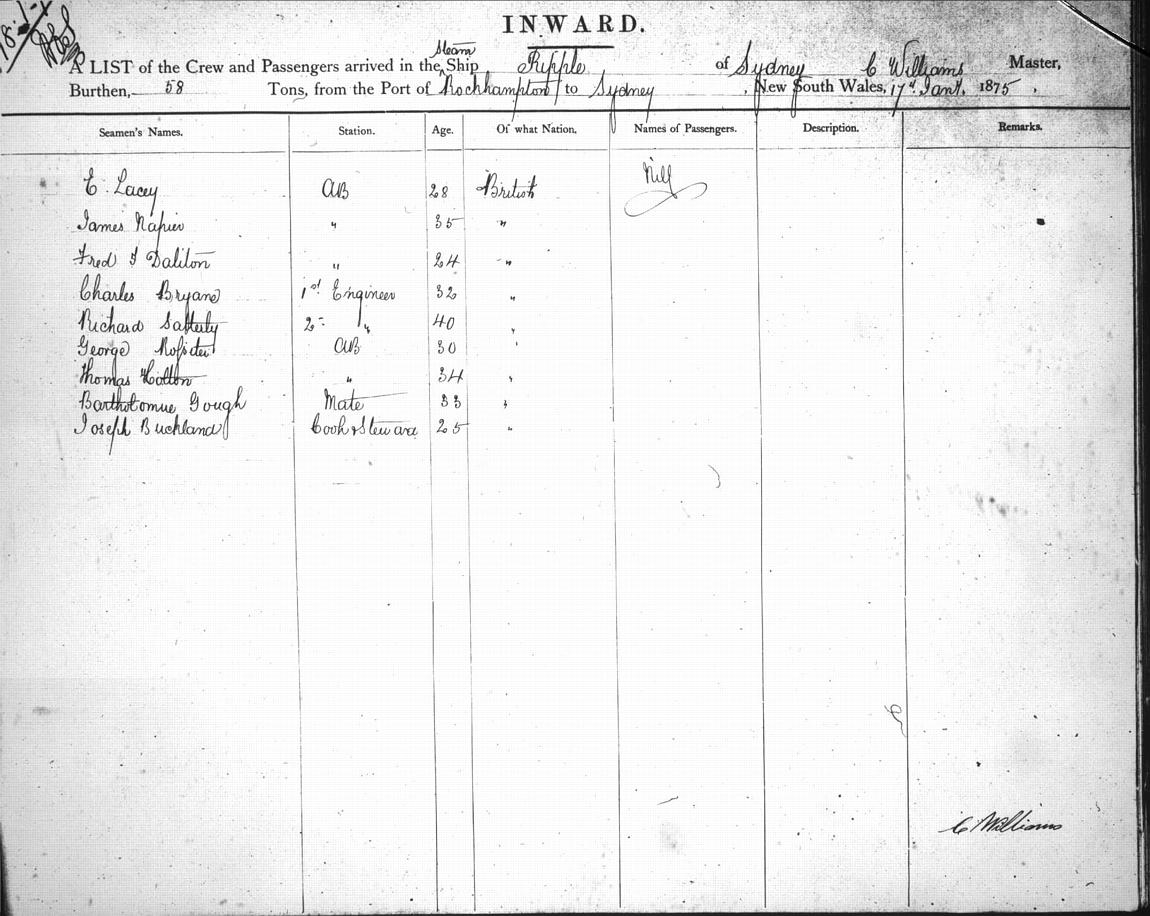 INWARD.
Steam
A LIST of the Crew and Passengers arrived in the Ship Ripple of Sydney C Williams Master,
Burthen, 58 Tons, from the Port of Rockhampton to Sydney, New South Wales, 17th Jany. 1875.
Seamen's Names. Station. Age. Of what Nation. Names of Passengers. Description. Remarks.
E. Lacey AB 28 British Nill
James Napier " 35 "
Fred J Daliton " 24 "
Charles Bryane 1st Engineer 32 "
Richard Satterly 2nd " 40 "
George 	AB 30 "
Thomas Hotton " 34 "
Bartholomue Gough Mate 33 "
Joseph Buckland Cook & Steward 25 "
C Williams